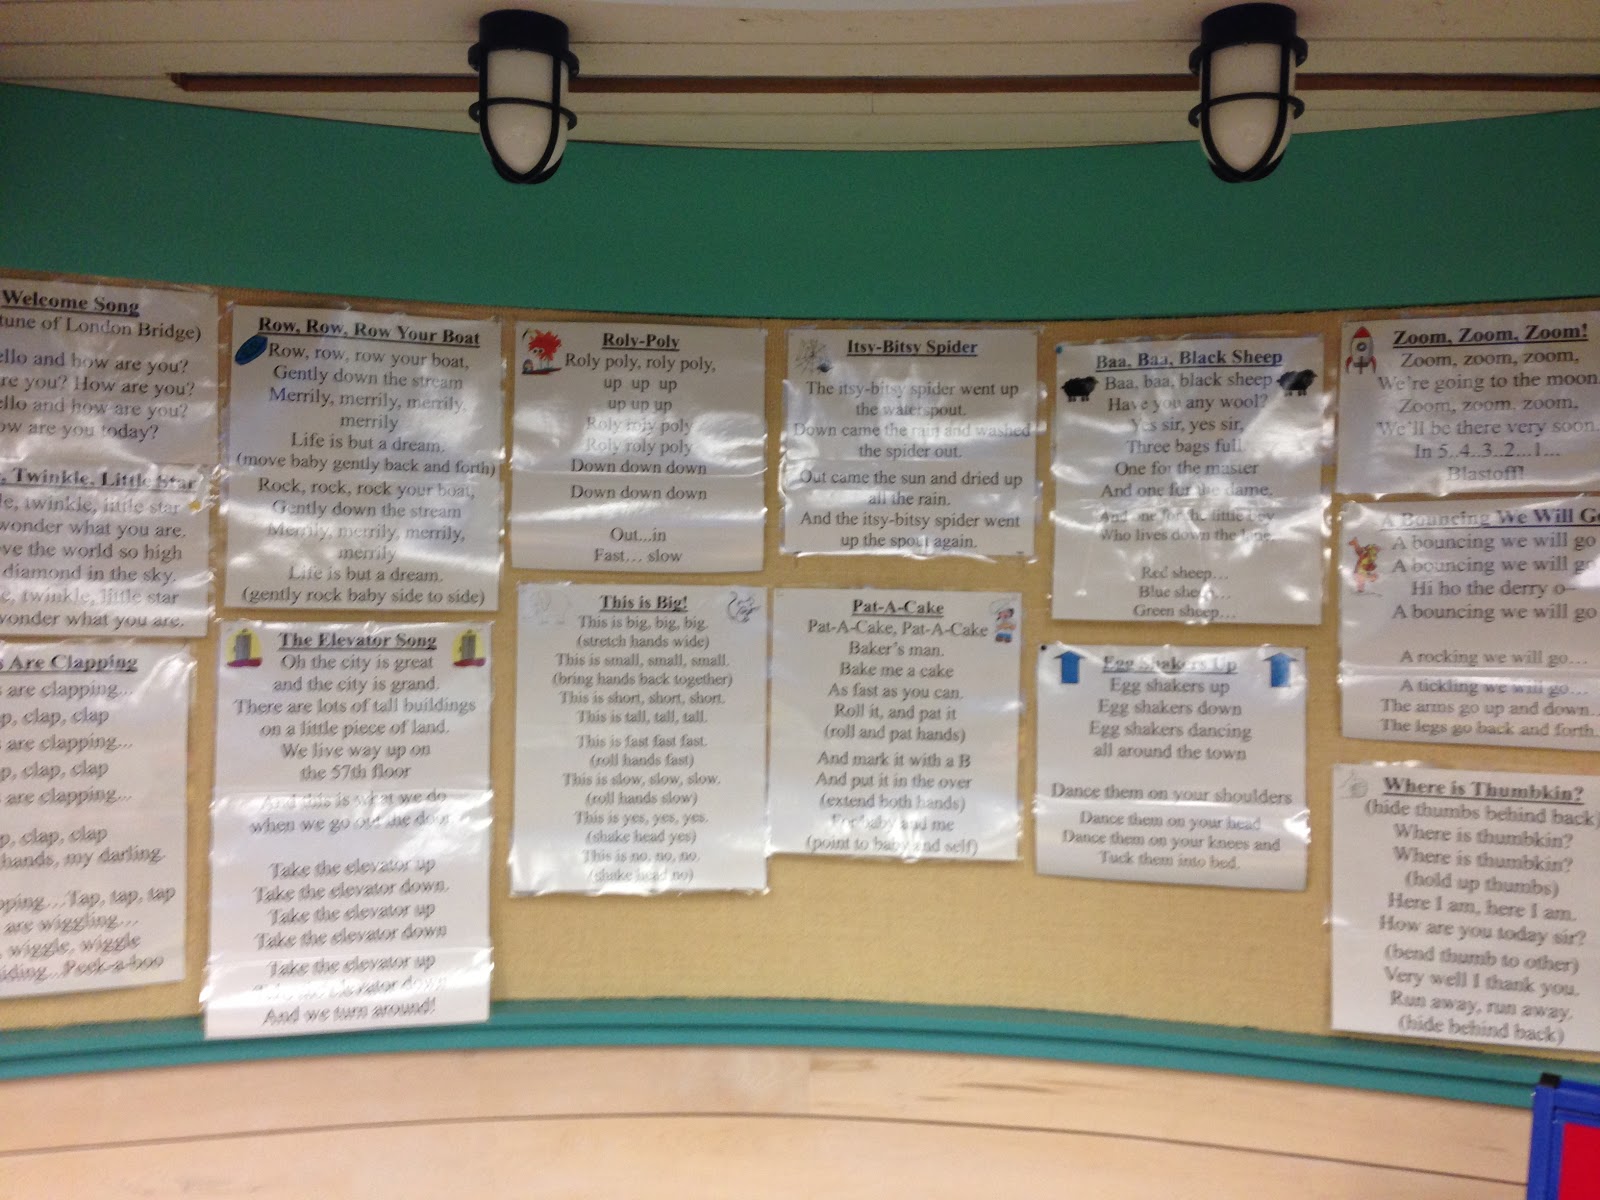 Welcome Song
tune of London Bridge)
ello and how are you?
re you? How are you?
ello and how are you?
ow are you today?
, Twinkle, Little Star
le, twinkle, little star
wonder what you are.
ve the world so high
diamond in the sky.
e, twinkle, little star
wonder what you are.
s Are Clapping
s are clapping...
p, clap, clap
s are clapping...
p, clap, clap
s are clapping...
p, clap, clap
hands, my darling.
pping...Tap, tap, tap
are wiggling...
, wiggle, wiggle
iding...Peek-a-boo
Row, Row, Row Your Boat
Row, row, row your boat,
Gently down the stream
Merrily, merrily, merrily,
merrily
Life is but a dream.
(move baby gently back and forth)
Rock, rock, rock your boat,
Gently down the stream
Merrily, merrily, merrily,
merrily
Life is but a dream.
(gently rock baby side to side)
The Elevator Song
Oh the city is great
and the city is grand.
There are lots of tall buildings
on a little piece of land.
We live way up on
the 57th floor
And this is what we do
when we go out the door.
Take the elevator up
Take the elevator down.
Take the elevator up
Take the elevator down
Take the elevator up
Take the elevator down
And we turn around!
Roly-Poly
Roly poly, roly poly,
up up up
up up up
Roly roly poly
Roly roly poly
Down down down
Down down down
Out...in
Fast... slow
This is Big!
This is big, big, big.
(stretch hands wide)
This is small, small, small.
(bring hands back together)
This is short, short, short.
This is tall, tall, tall.
This is fast fast fast.
(roll hands fast)
This is slow, slow, slow.
(roll hands slow)
This is yes, yes, yes.
(shake head yes)
This is no, no, no.
(shake head no)
Itsy-Bitsy Spider
The itsy-bitsy spider went up
the waterspout.
Down came the rain and washed
the spider out.
Out came the sun and dried up
all the rain.
And the itsy-bitsy spider went
up the spout again.
Pat-A-Cake
Pat-A-Cake, Pat-A-Cake
Baker's man.
Bake me a cake
As fast as you can.
Roll it, and pat it
(roll and pat hands)
And mark it with a B
And put it in the over
(extend both hands)
For baby and me
(point to baby and self)
Baa, Baa, Black Sheep
Baa, baa, black sheep
Have you any wool?
Yes sir, yes sir,
Three bags full.
One for the master
And one for the dame,
And one for the little boy
Who lives down the lane.
Red sheep...
Blue sheep...
Green sheep...
Egg Shakers Up
Egg shakers up
Egg shakers down
Egg shakers dancing
all around the town
Dance them on your shoulders
Dance them on your head
Dance them on your knees and
Tuck them into bed.
Zoom, Zoom, Zoom!
Zoom, zoom, zoom,
We're going to the moon.
Zoom, zoom, zoom,
We'll be there very soon.
In 5..4..3..2...1...
Blastoff!
A Bouncing We Will Go
A bouncing we will go
A bouncing we will go
Hi ho the derry o–
A bouncing we will go
A rocking we will go...
A tickling we will go...
The arms go up and down...
The legs go back and forth.
Where is Thumbkin?
(hide thumbs behind back)
Where is thumbkin?
Where is thumbkin?
(hold up thumbs)
Here I am, here I am.
How are you today sir?
(bend thumb to other)
Very well I thank you.
Run away, run away.
(hide behind back)